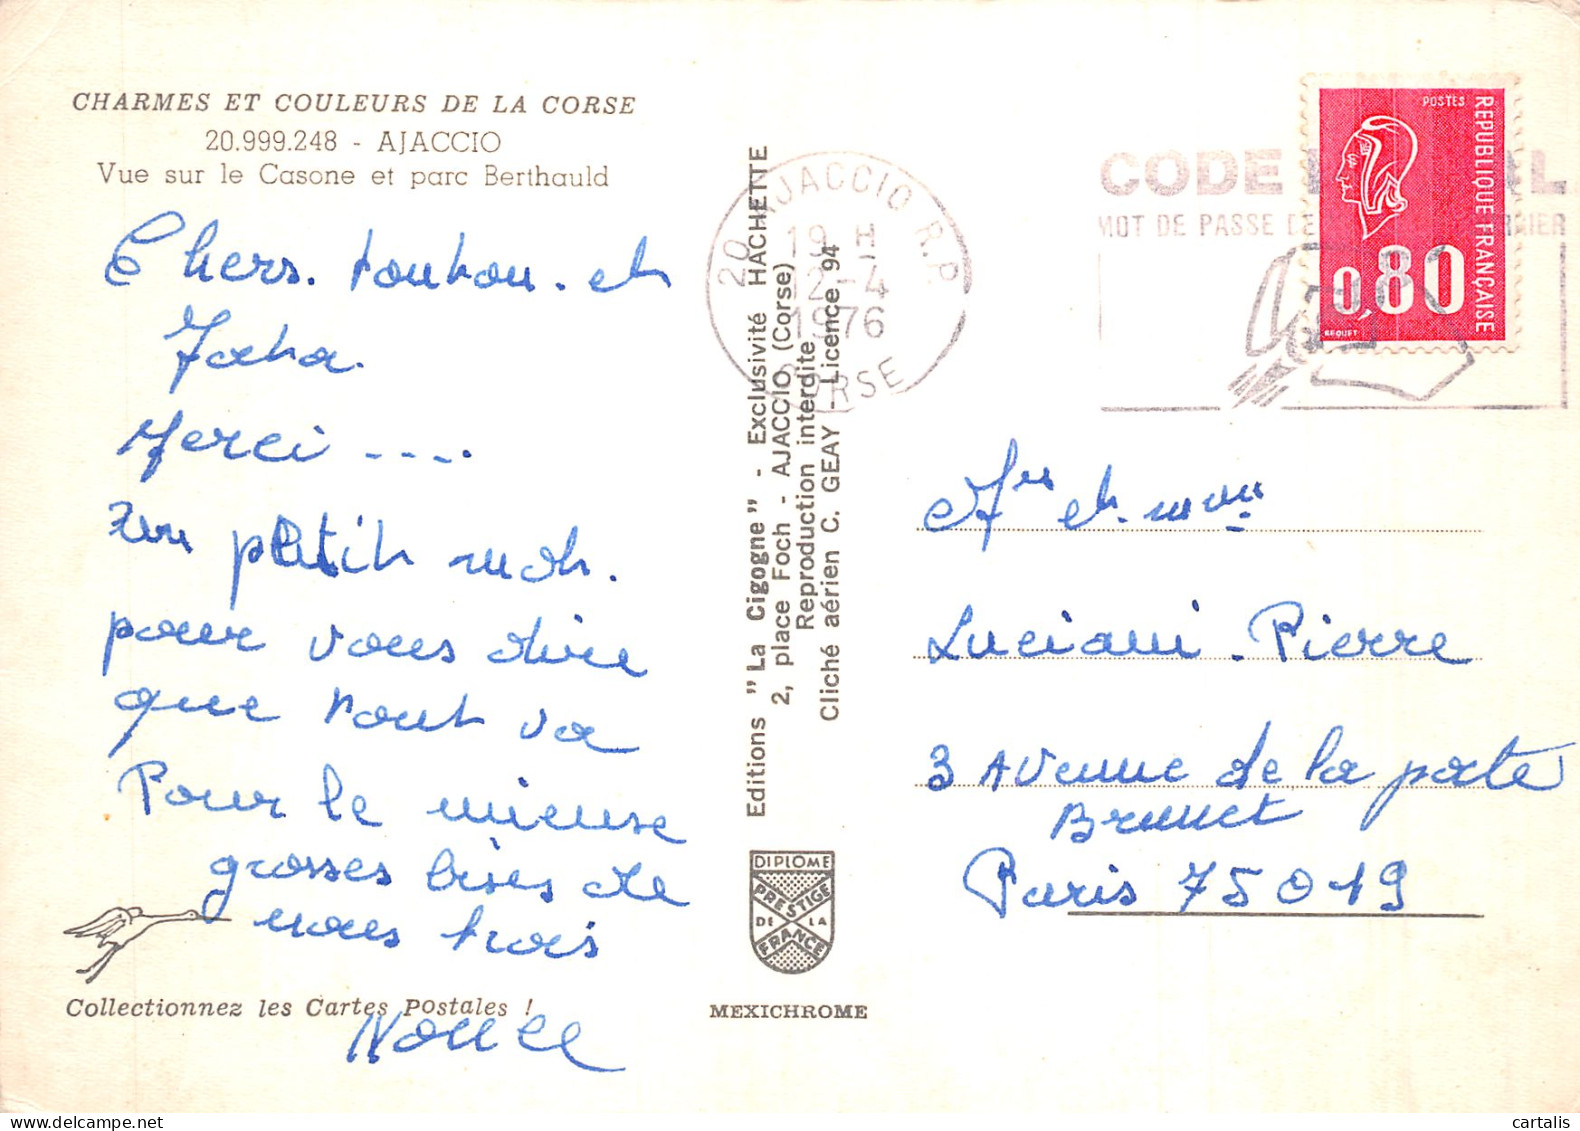 CHARMES ET COULEURS DE LA CORSE
20.999.248 - AJACCIO
Vue sur le Casone et parc Berthauld
Chers. tonton. et
Merci ....
un petit mot.
pour vous dire
que tout va
Pour le mieuse
grosses bises de
nous trois
Collectionnez les Cartes Postales !
Editions "La Cigogne" - Exclusivité HACHETTE
2, place Foch - AJACCIO (Corse)
Reproduction interdite
Cliché aérien C. GEAY - Licence 94
DIPLOME
PRESTIGE
DE LA
FRANCE
MEXICHROME
20 AJACCIO R.P.
19 H
12-4
1976
CORSE
CODE
MOT DE PASSE DE
POSTES
REPUBLIQUE FRANÇAISE
0,80
BEQUET
Mr et mme
Luciani. Pierre
3 Avenue de la porte
Brunet
Paris 75019
cartalis